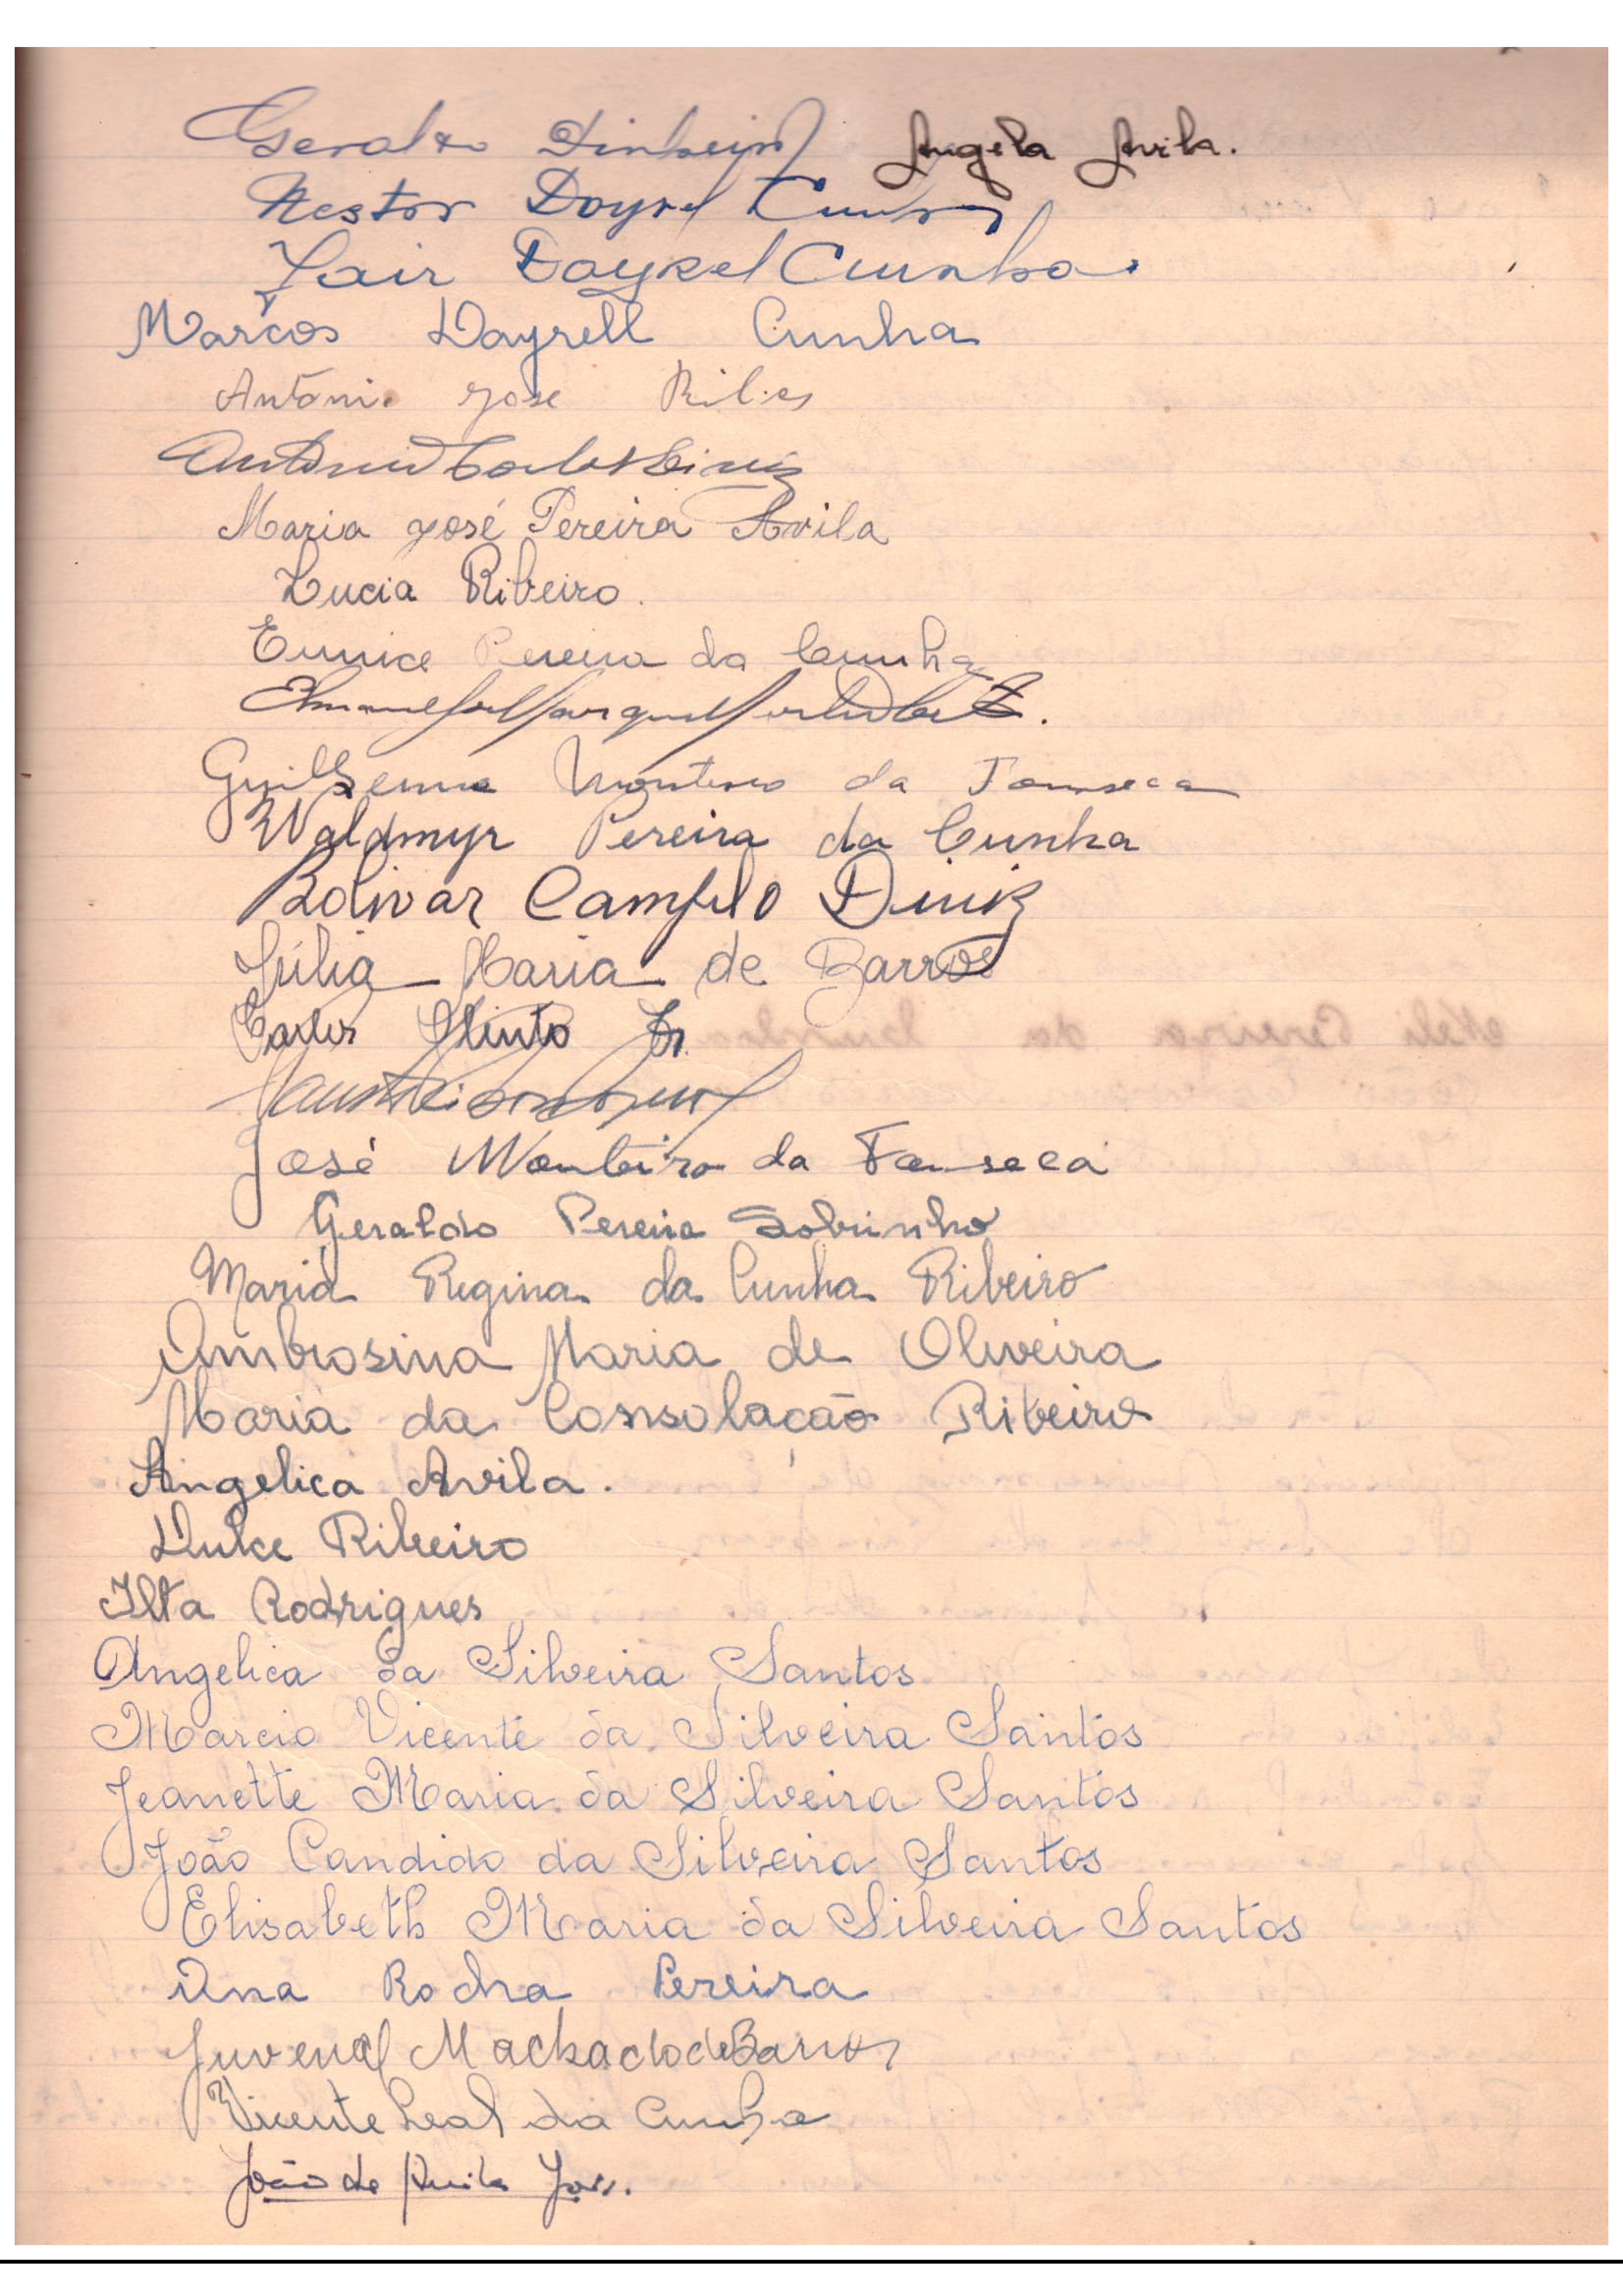 Geraldo Pinheiro Angela Avila.
Nestor Dayrel Cunha
Jair Dayrel Cunha
Marcos Dayrell Cunha
Antônio José
Antonio Carlos Diniz
Maria José Pereira Avila
Lucia Ribeiro.
Eunice Pereira da Cunha
Guilherme Monteiro da Fonseca
Waldmyr Pereira da Cunha
Bolivar Campelo Diniz
Júlia Maria de Barros
Carlos Olinto Jr.
José Monteiro da Fonseca
Geraldo Pereira Sobrinho
Maria Regina da Cunha Ribeiro
Ambrosina Maria de Oliveira
Maria da Consolação Ribeiro
Angelica Avila.
Dulce Ribeiro
Ilta Rodrigues
Angelica da Silveira Santos
Marcio Vicente da Silveira Santos
Jeanette Maria da Silveira Santos
João Candido da Silveira Santos
Elisabeth Maria da Silveira Santos
Ana Rocha Pereira
Juvenal Machado de Barros
Vicente Leal da Cunha
João de Avila